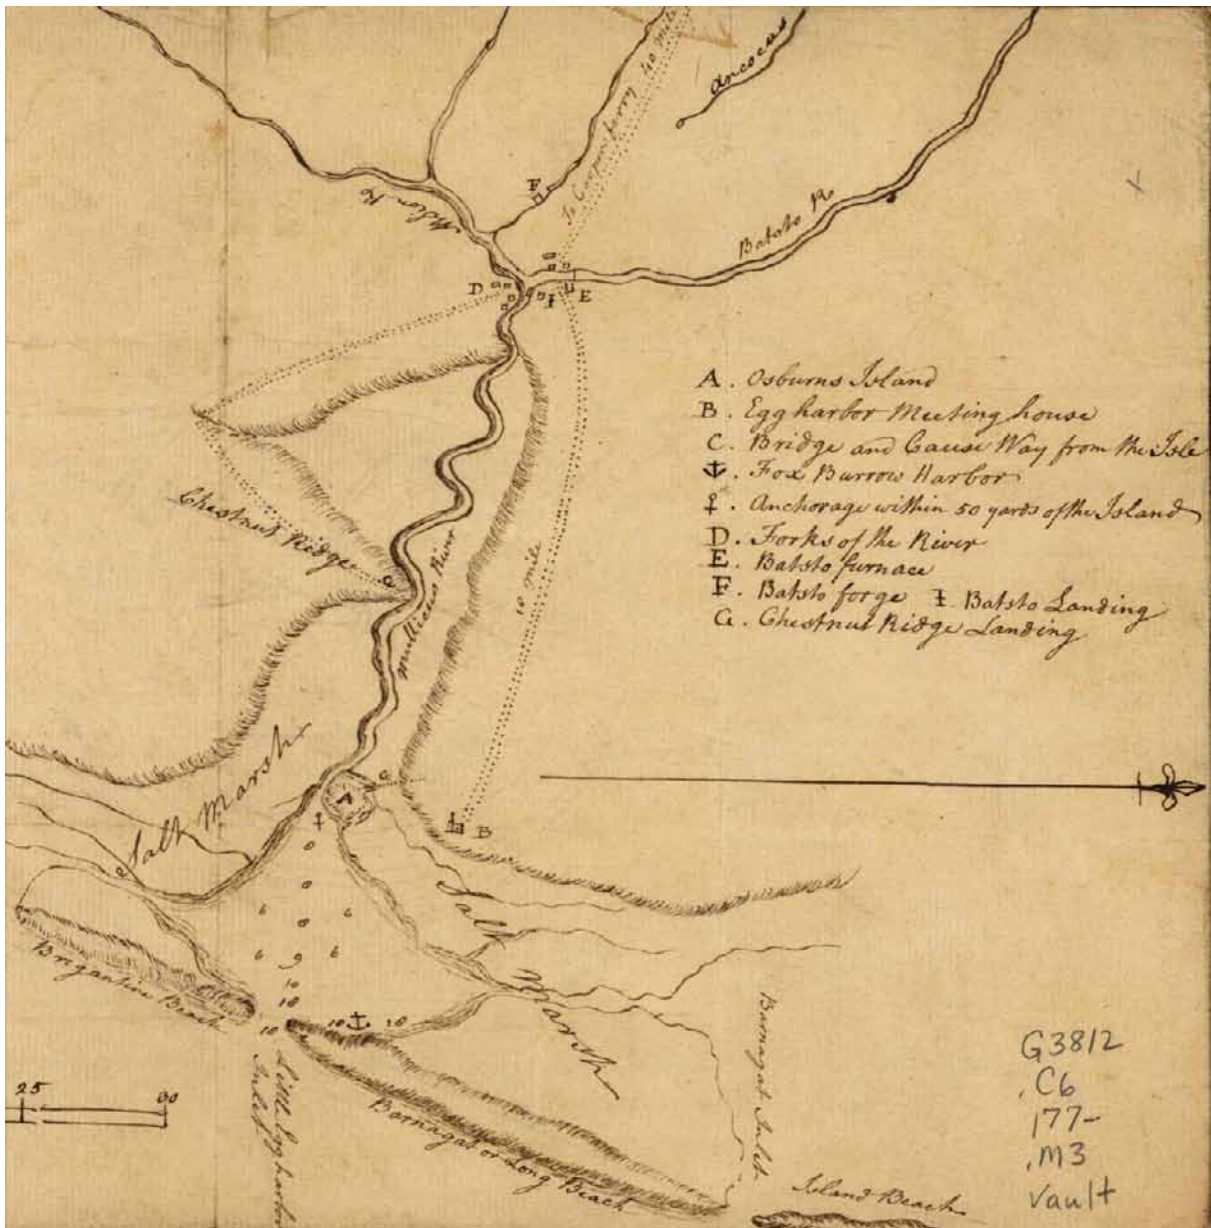 Ancocas
To Coopers ferry 40 mile
F
Batsto R
D
E
A. Osburns Island
B. Eggharbor Meeting house
C. Bridge and Cause Way from the Isle
Fox Burrow Harbor
Anchorage within 50 yards of the Island
D. Forks of the River
E. Batsto furnace
F. Batsto forge Batsto Landing
G. Chestnut Ridge Landing
Chestnut Ridge
G
10 mile
Mullicus River
Salt Marsh
A
C
B
Salt Marsh
6
8
8
6
8
6
6
9
6
10
10
10
10
10
Brigantine Beach
Little Eggharbor
Inlet
Barnagat or Long Beach
Barnagat Inlet
Island Beach
25
30
G3812
.C6
177-
.M3
Vault